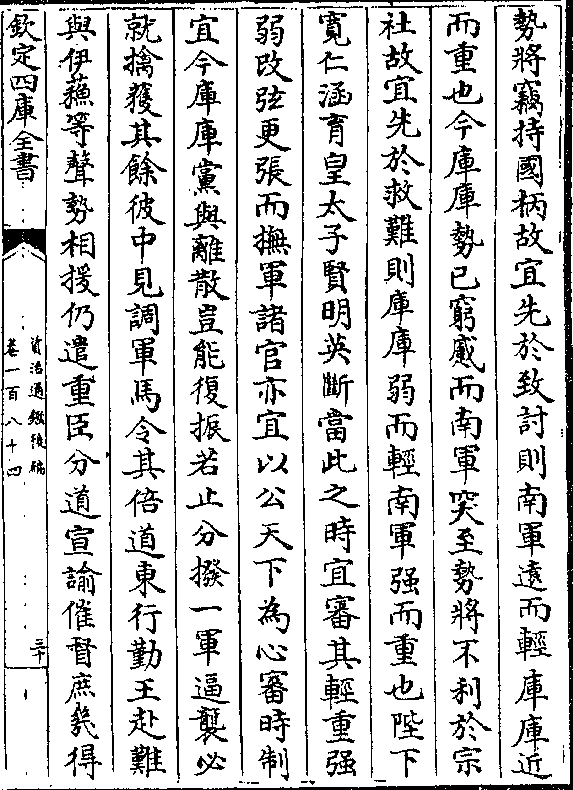 勢將竊持國柄故宜先於致討則南軍遠而輕庫庫近
而重也今庫庫勢已窮蹙而南軍突至勢將不利於宗
社故宜先於救難則庫庫弱而輕南軍强而重也陛下
寛仁涵育皇太子賢明英斷當此之時宜審其輕重强
弱改弦更張而撫軍諸官亦宜以公天下為心審時制
宜今庫庫黨與離散豈能復振若止分撥一軍逼襲必
就擒獲其餘彼中見調軍馬令其倍道東行勤王赴難
與伊蘓等聲勢相援仍遣重臣分道宣諭催督庶幾得
欽定四庫全書
資治通鑑後編
卷一百八十四
三十